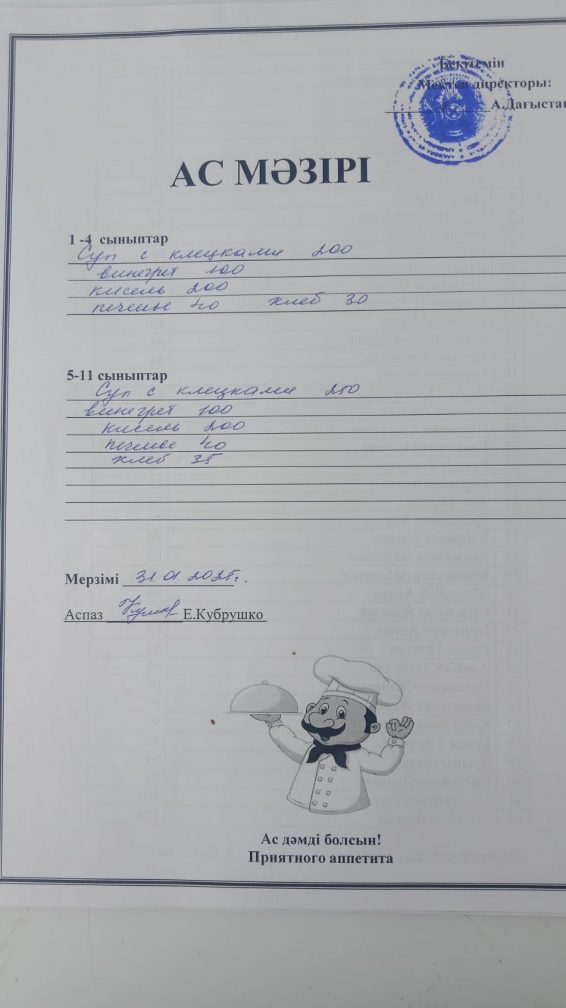 Бекітемін
Мектеп директоры:
А.Дағыстан
АС МӘЗІРІ
1 -4 сыныптар
Суп с клецками 200
винегрет 100
кисель 200
печенье 40 хлеб 30
5-11 сыныптар
Суп с клецками 250
винегрет 100
кисель 200
печенье 40
хлеб 35
Мерзімі 31.01 2025г.
Аспаз Е.Кубрушко
Ас дәмді болсын!
Приятного аппетита